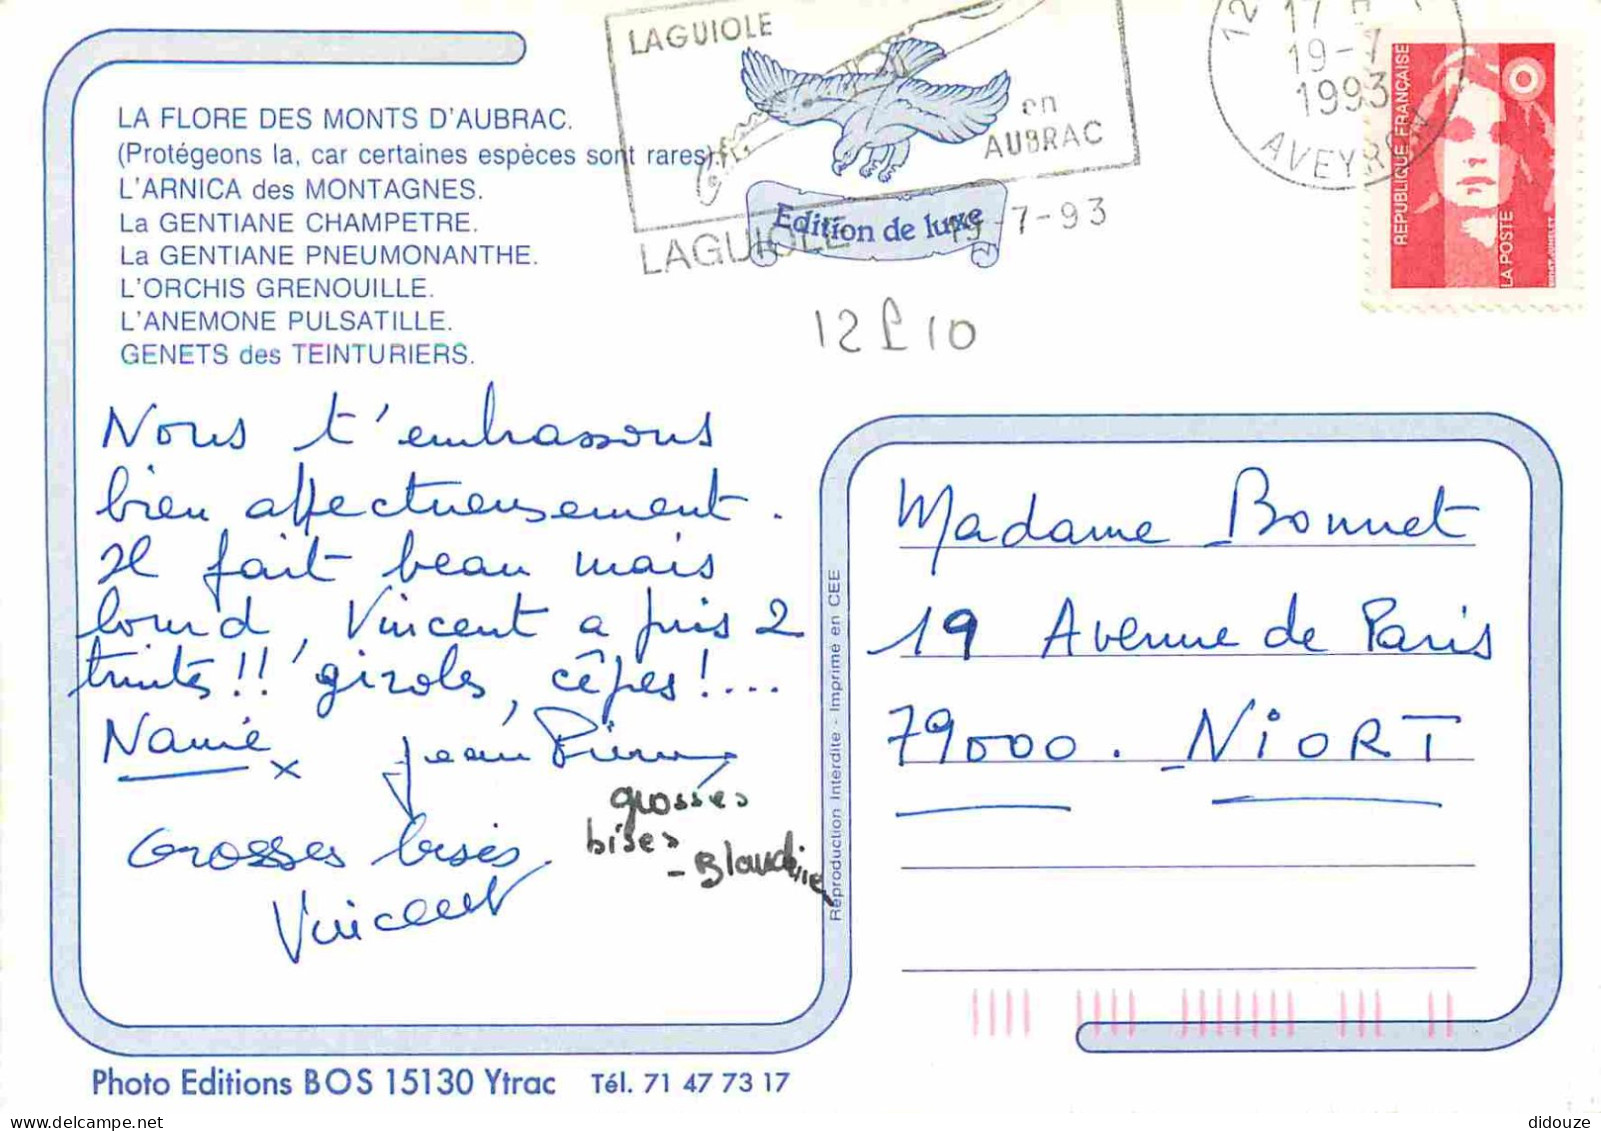 LAGUIOLE
en
AUBRAC
LAGUIOLE 19-7-93
Edition de luxe
12
17 H
19-7
1993
AVEYRON
REPUBLIQUE FRANÇAISE
LA POSTE
LA FLORE DES MONTS D'AUBRAC.
(Protégeons la, car certaines espèces sont rares).
L'ARNICA des MONTAGNES.
La GENTIANE CHAMPETRE.
La GENTIANE PNEUMONANTHE.
L'ORCHIS GRENOUILLE.
L'ANEMONE PULSATILLE.
GENETS des TEINTURIERS.
12 L 10
Nous t'embrassons
bien affectueusement.
Il fait beau mais
lourd, Vincent a pris 2
truites!! giroles, cêpes!....
Jean Pierre
Grosses bises.
Vincent
grosses
bises
- Blandine
Reproduction Interdite - Imprime en CEE
Madame Bonnet
19 Avenue de Paris
79000. NiORT
Photo Editions BOS 15130 Ytrac Tél. 71 47 73 17
didouze